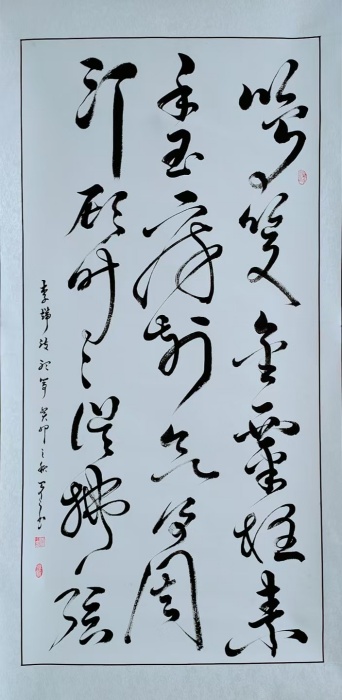 鸣筝金粟柱素
手玉房前欲得周
郎顾时时误拂弦
李端诗听筝癸卯之秋